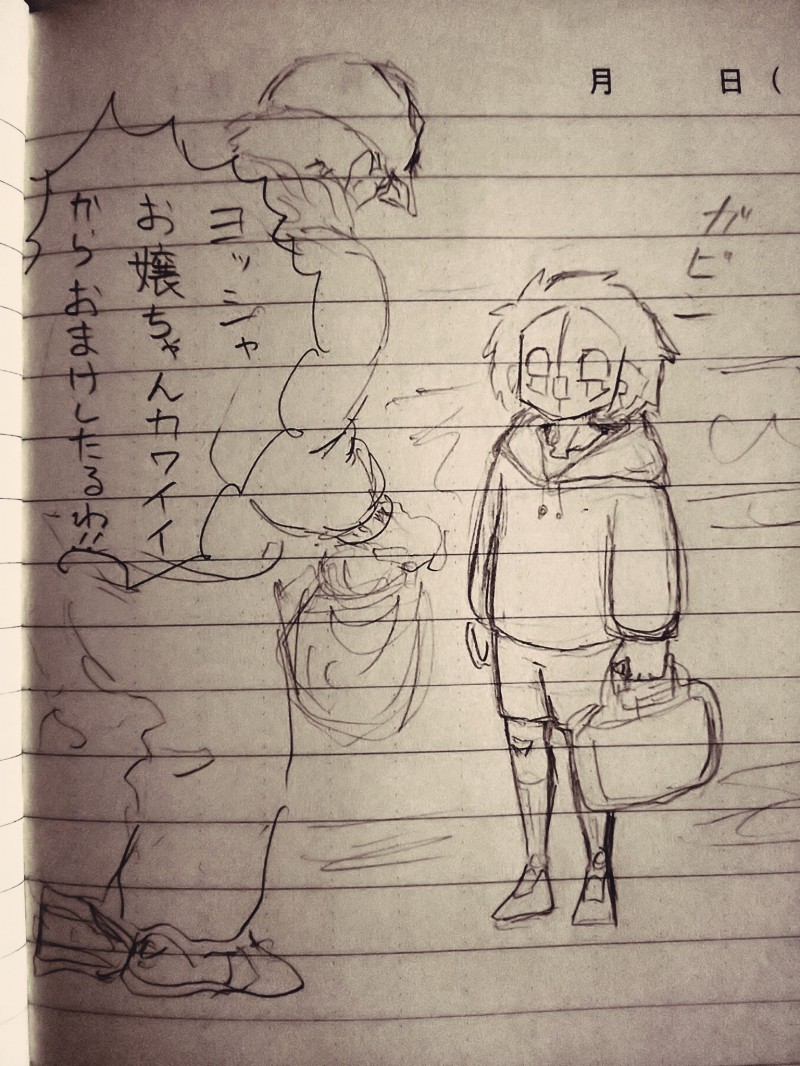 月 日(
ヨッシャ
お嬢ちゃんカワイイ
からおまけしたるわ!!
ガビーン